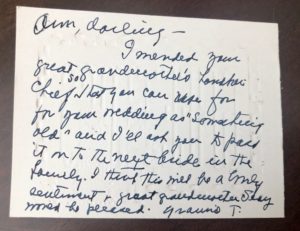 Ann, darling —
I mended your
great grandmother's
chief so that you can use for
for your wedding as "something
old" and I'll ask you to pass
it on to the next bride in the
family. I think this will be a lovely
sentiment & great grandmother
would be pleased. Grannie T.